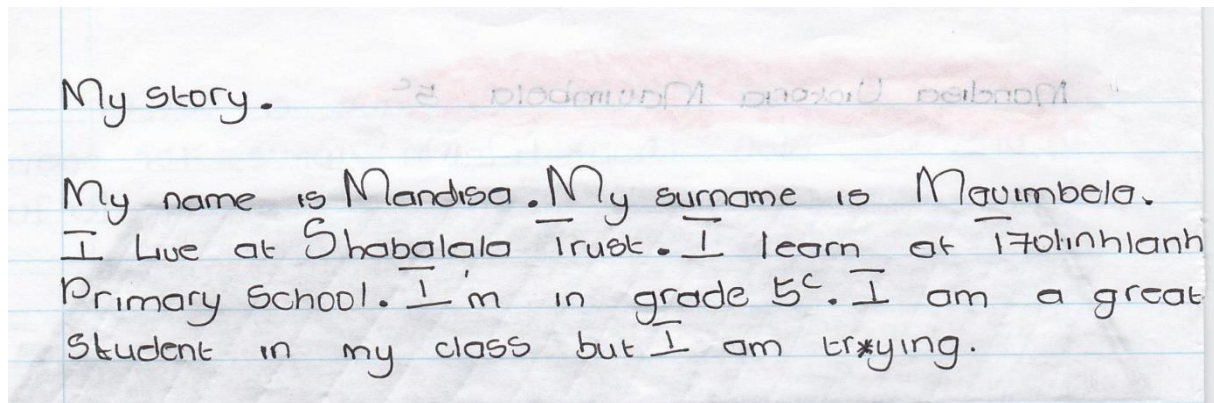 My story.
My name is Mandisa. My surname is Mavimbela.
I Live at Shabalala Trust. I learn at
Primary School. I'm in grade 5c. I am a great
Student in my class but I am trying.